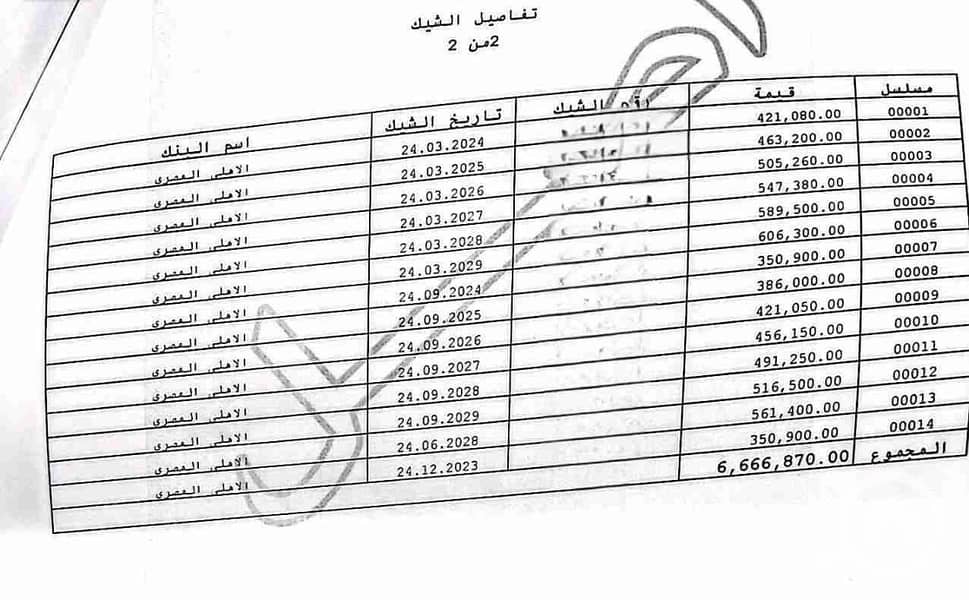 تفاصيل الشيك
2من 2
مسلسل قيمة رقم الشيك تاريخ الشيك اسم البنك
00001 421,080.00 24.03.2024 الاهلى المصرى
00002 463,200.00 24.03.2025 الاهلى المصرى
00003 505,260.00 24.03.2026 الاهلى المصرى
00004 547,380.00 24.03.2027 الاهلى المصرى
00005 589,500.00 24.03.2028 الاهلى المصرى
00006 606,300.00 24.03.2029 الاهلى المصرى
00007 350,900.00 24.09.2024 الاهلى المصرى
00008 386,000.00 24.09.2025 الاهلى المصرى
00009 421,050.00 24.09.2026 الاهلى المصرى
00010 456,150.00 24.09.2027 الاهلى المصرى
00011 491,250.00 24.09.2028 الاهلى المصرى
00012 516,500.00 24.09.2029 الاهلى المصرى
00013 561,400.00 24.06.2028 الاهلى المصرى
00014 350,900.00 24.12.2023 الاهلى المصرى
المجموع 6,666,870.00